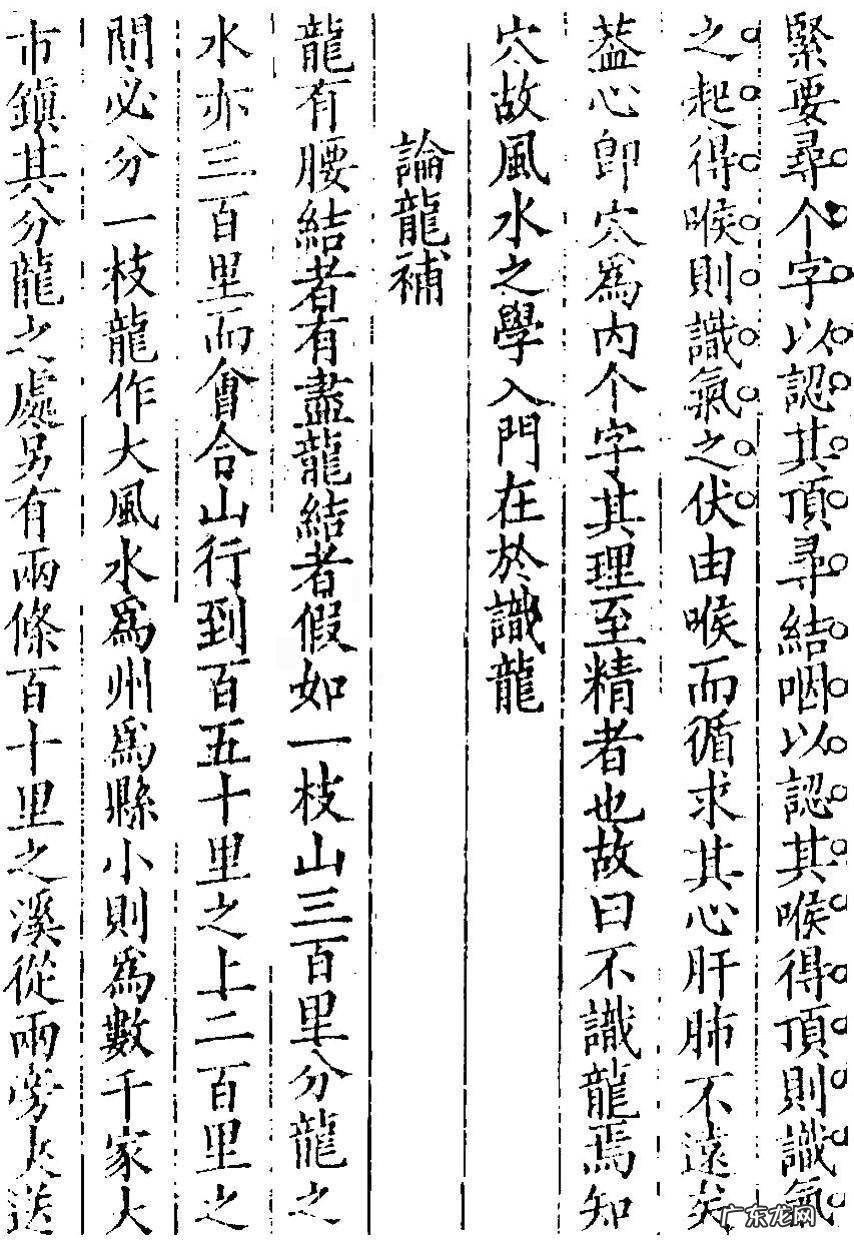 緊要尋个字以認其頂尋結咽以認其喉得頂則識氣
之起得喉則識氣之伏由喉而循求其心肝肺不遠矣
葢心卽穴爲内个字其理至精者也故曰不識龍焉知
穴故風水之學入門在於識龍
論龍補
龍有腰結者有盡龍結者假如一枝山三百里分龍之
水亦三百里而會合山行到百五十里之上二百里之
間必分一枝龍作大風水爲州爲縣小則爲數千家大
市鎮其分龍之處另有兩條百十里之溪從兩旁夾送
广东龙网